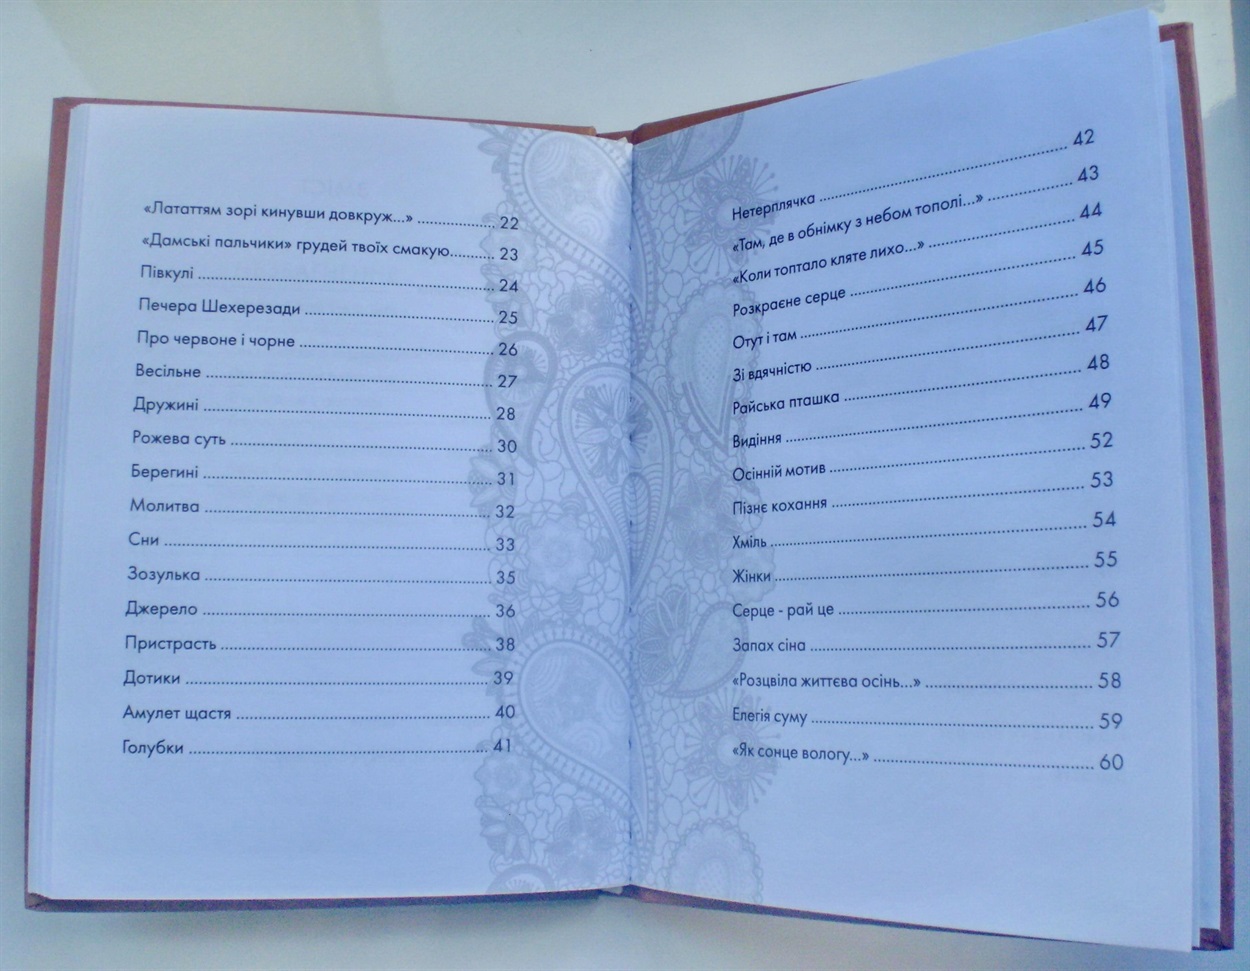 «Лататтям зорі кинувши довкруж...» 22
«Дамські пальчики» грудей твоїх смакую 23
Півкулі 24
Печера Шехерезади 25
Про червоне і чорне 26
Весільне 27
Дружині 28
Рожева суть 30
Берегині 31
Молитва 32
Сни 33
Зозулька 35
Джерело 36
Пристрасть 38
Дотики 39
Амулет щастя 40
Голубки 41
Нетерплячка 42
«Там, де в обнімку з небом тополі...» 43
«Коли топтало кляте лихо...» 44
Розкраєне серце 45
Отут і там 46
Зі вдячністю 47
Райська пташка 48
Видіння 49
Осінній мотив 52
Пізнє кохання 53
Хміль 54
Жінки 55
Серце - рай це 56
Запах сіна 57
«Розцвіла життєва осінь...» 58
Елегія суму 59
«Як сонце вологу...» 60